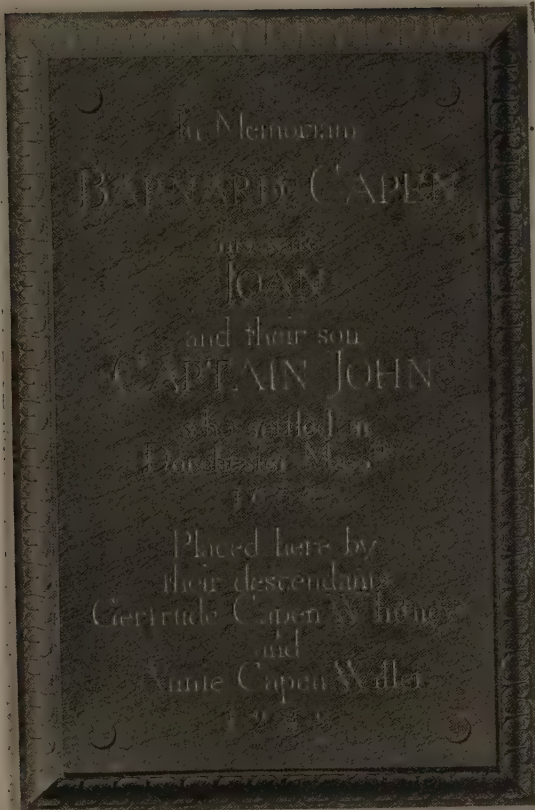 In Memoriam
BARNARD CAPEN
his wife
JOAN
and their son
CAPTAIN JOHN
who settled in
Dorchester Mass
Placed here by
their descendants
Gertrude Capen Whitney
and
Annie Capen